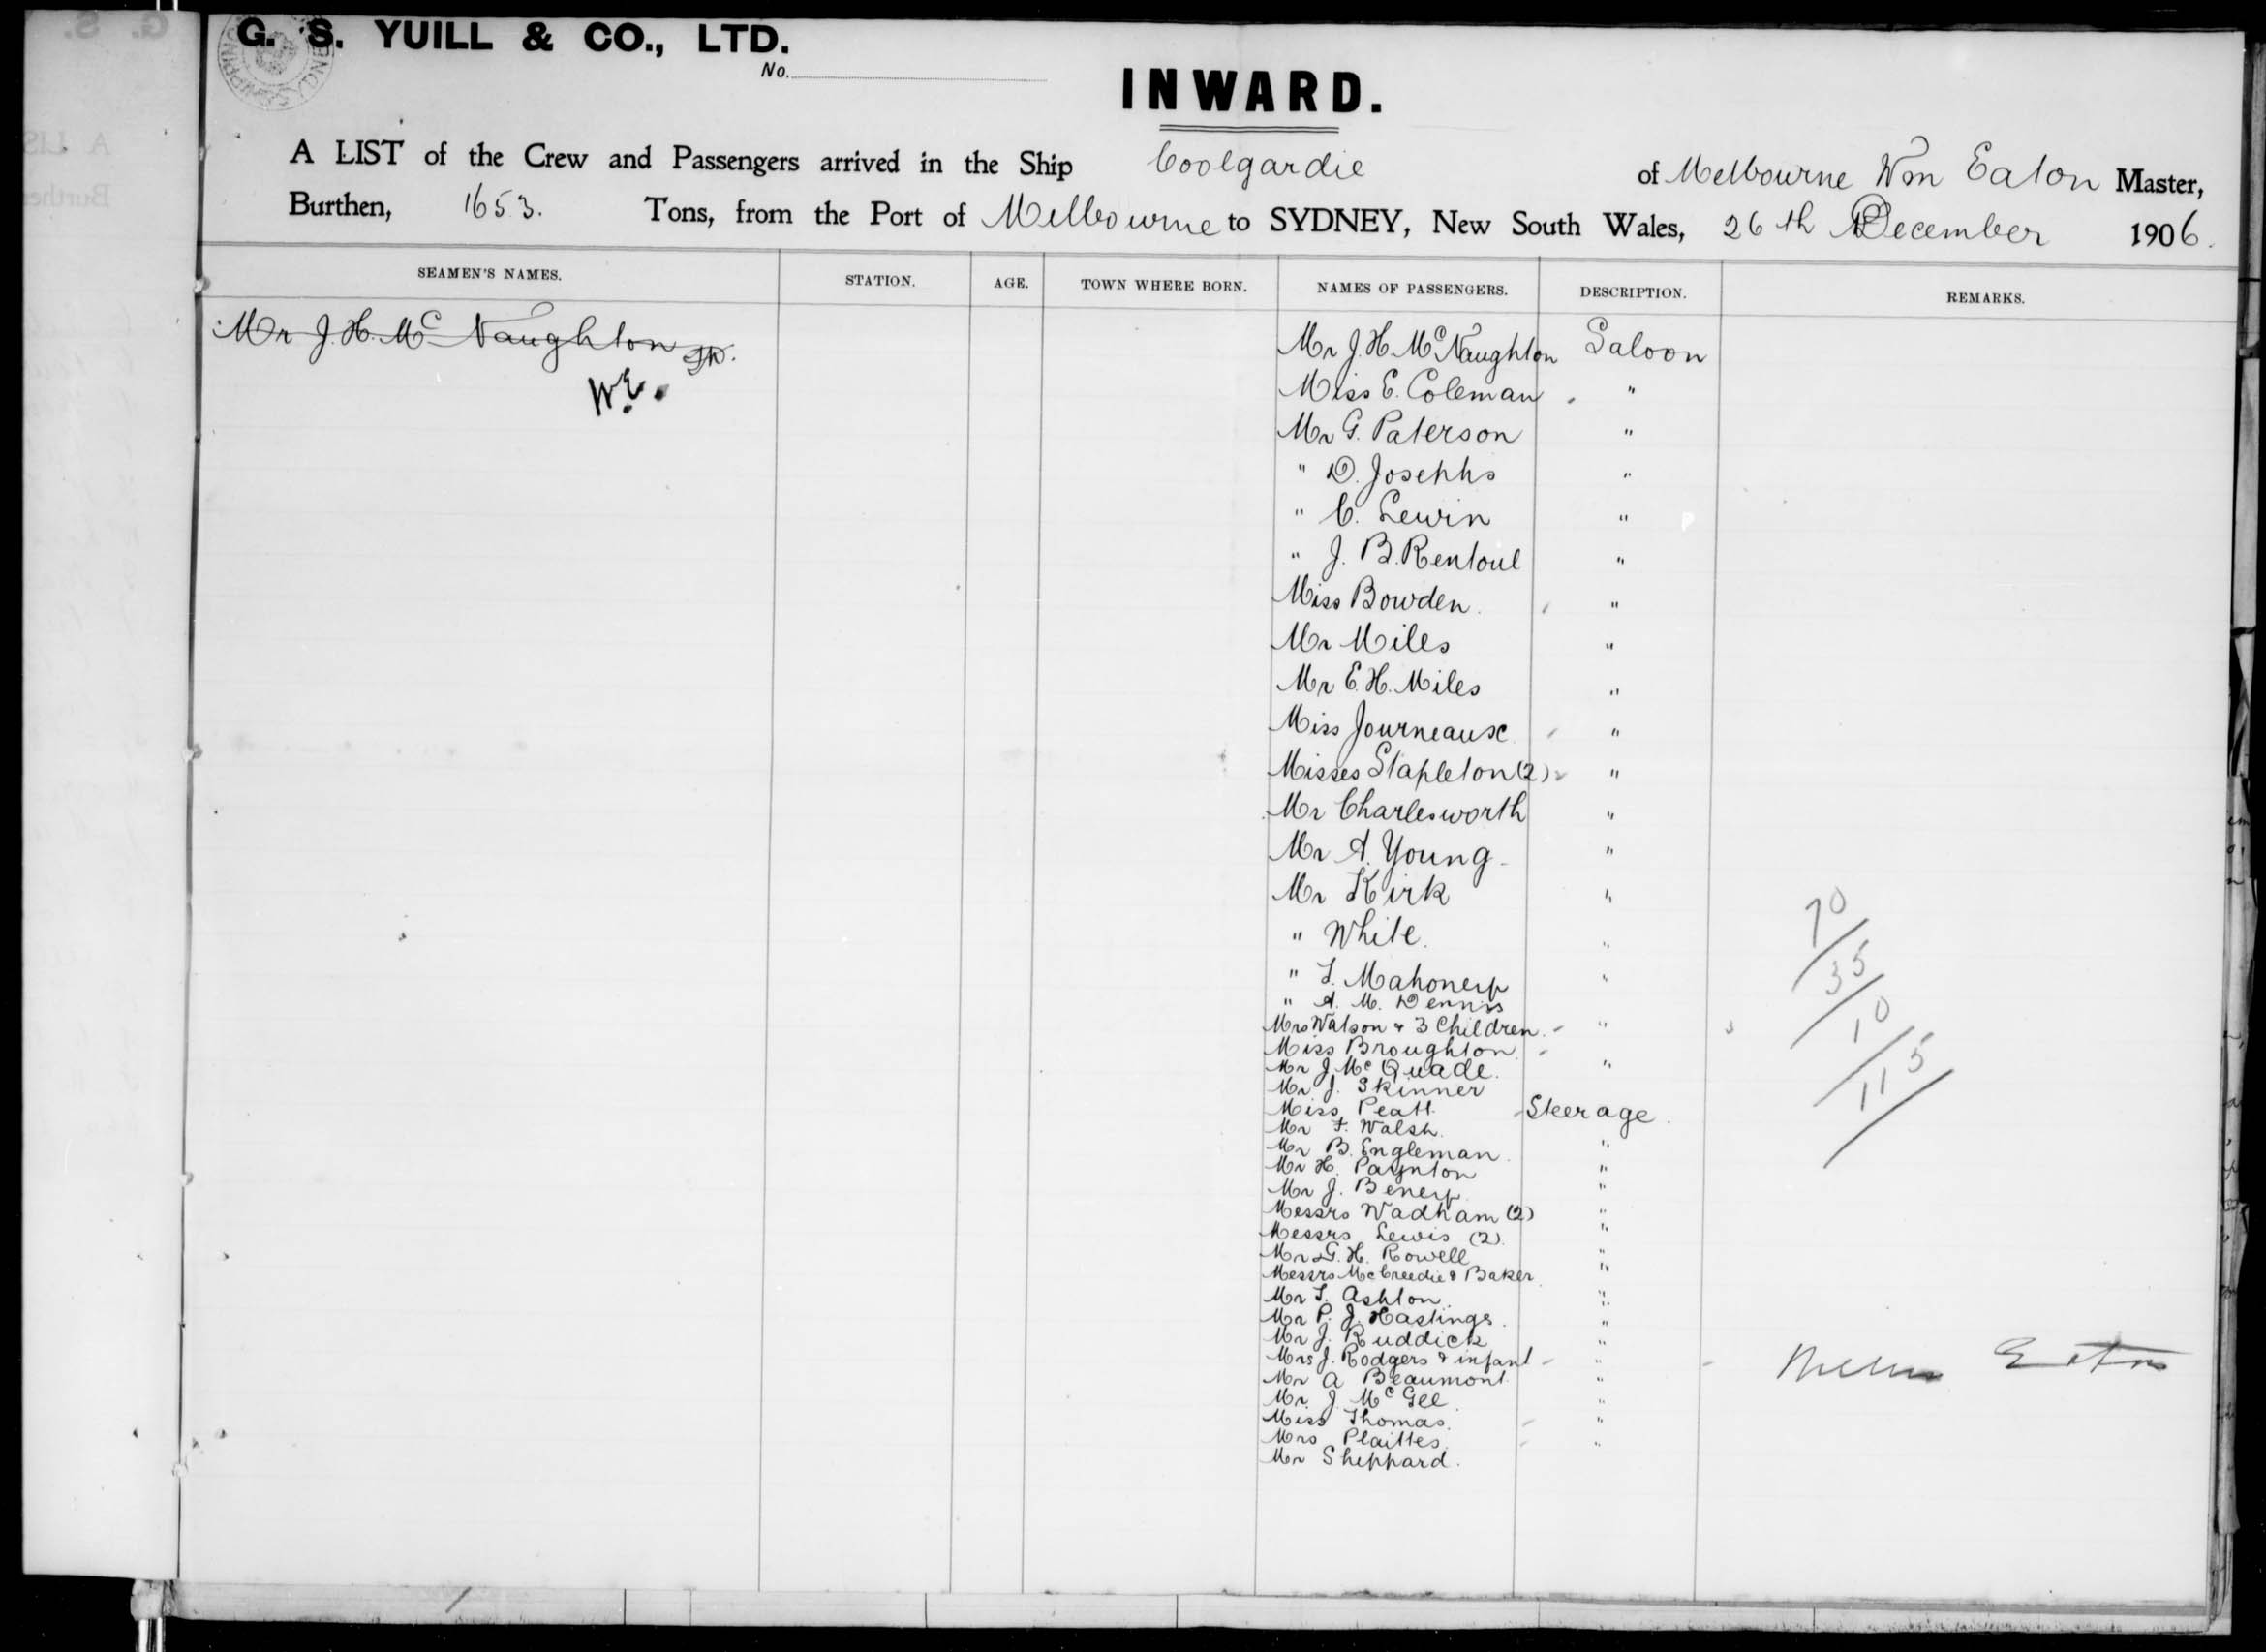 G. S. YUILL & CO., LTD.
No.
INWARD.
A LIST of the Crew and Passengers arrived in the Ship Coolgardie of Melbourne Wm Eaton Master,
Burthen, 1653. Tons, from the Port of Melbourne to SYDNEY, New South Wales, 26th December 1906.
SEAMEN'S NAMES. STATION. AGE. TOWN WHERE BORN. NAMES OF PASSENGERS. DESCRIPTION. REMARKS.
Mr J. H. Mc Naughton Mr J. H. McNaughton Saloon
W.E. Miss E. Coleman "
Mr G. Paterson "
" D. Josephs "
" C. Lewin "
" J. B. Rentoul "
Miss Bowden "
Mr Miles "
Mr E. H. Miles "
Miss Journeaux "
Misses Stapleton (2) "
Mr Charlesworth "
Mr A. Young "
Mr Kirk "
" White. "
" T. Mahoney "
" A. M. Dennis
Mrs Watson & 3 Children. "
Miss Broughton
Mr J. Mc Quade. "
Mr J. Skinner
Miss Peatt. Steerage.
Mr F. Walsh.
Mr B. Engleman "
Mr H. Paynton "
Mr J. Beney "
Messrs Wadham (2) "
Messrs Lewis (2). "
Mr G. H. Rowell "
Messrs McCreedie & Baker "
Mr T. Ashton "
Mr P. J. Hastings. "
Mr J. Ruddick "
Mrs J. Rodgers & infant "
Mr A Beaumont "
Mr J. Mc Gee "
Miss Thomas. "
Mrs Plaittes "
Mr Sheppard.
70
35
10
115
Eaton